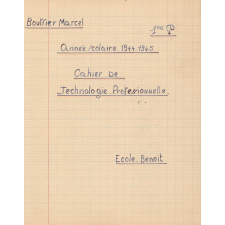 Bouffier Marcel
1ère P
Année scolaire 1944-1945
Cahier De
Technologie Professionnelle.
Ecole. Benoit